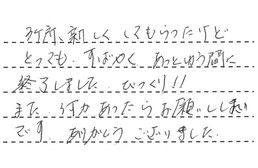 新しくしてもらったけど
とっても、すばやく あっとゆう間に
終了しました。びっくり!!
また、何かあったらお願いしたい
です ありがとうございました。